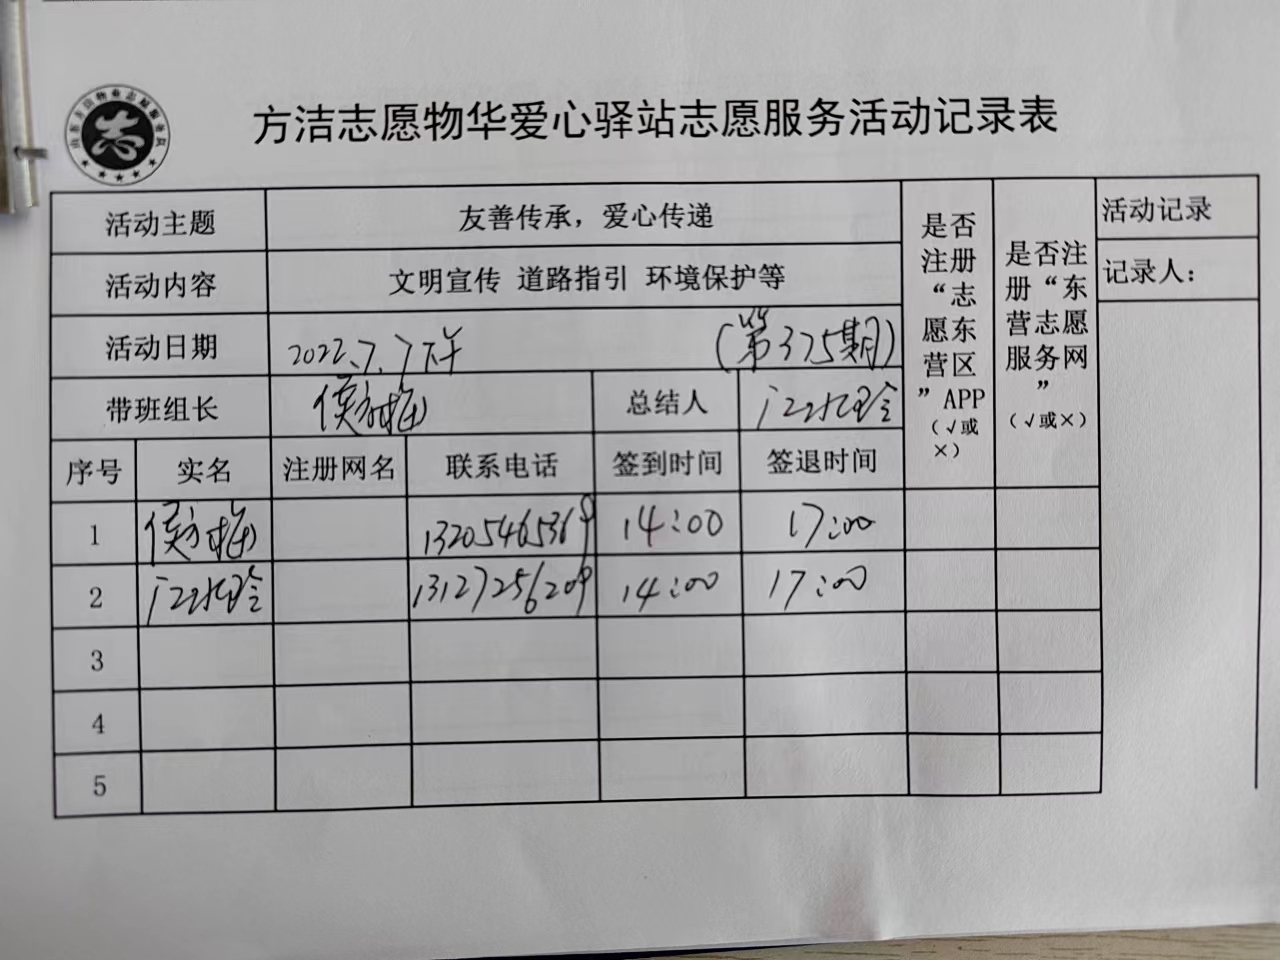 方洁志愿物华爱心驿站志愿服务活动记录表
志
活动主题 友善传承，爱心传递
活动内容 文明宣传 道路指引 环境保护等
活动日期 2022.7.7下午 （第375期）
带班组长 侯树梅 总结人
序号 实名 注册网名 联系电话 签到时间 签退时间
是否
注册
“志
愿东
营区
”APP
（√或
×）
是否注
册“东
营志愿
服务网
”
（√或×）
活动记录
记录人：
1 13205465369 14:00 17:00
2 13127256209 14:00 17:00
3
4
5